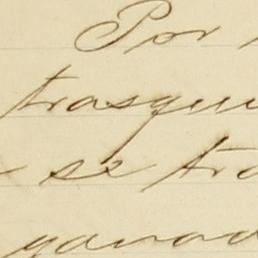 Por
trasqui
se tra
ganad